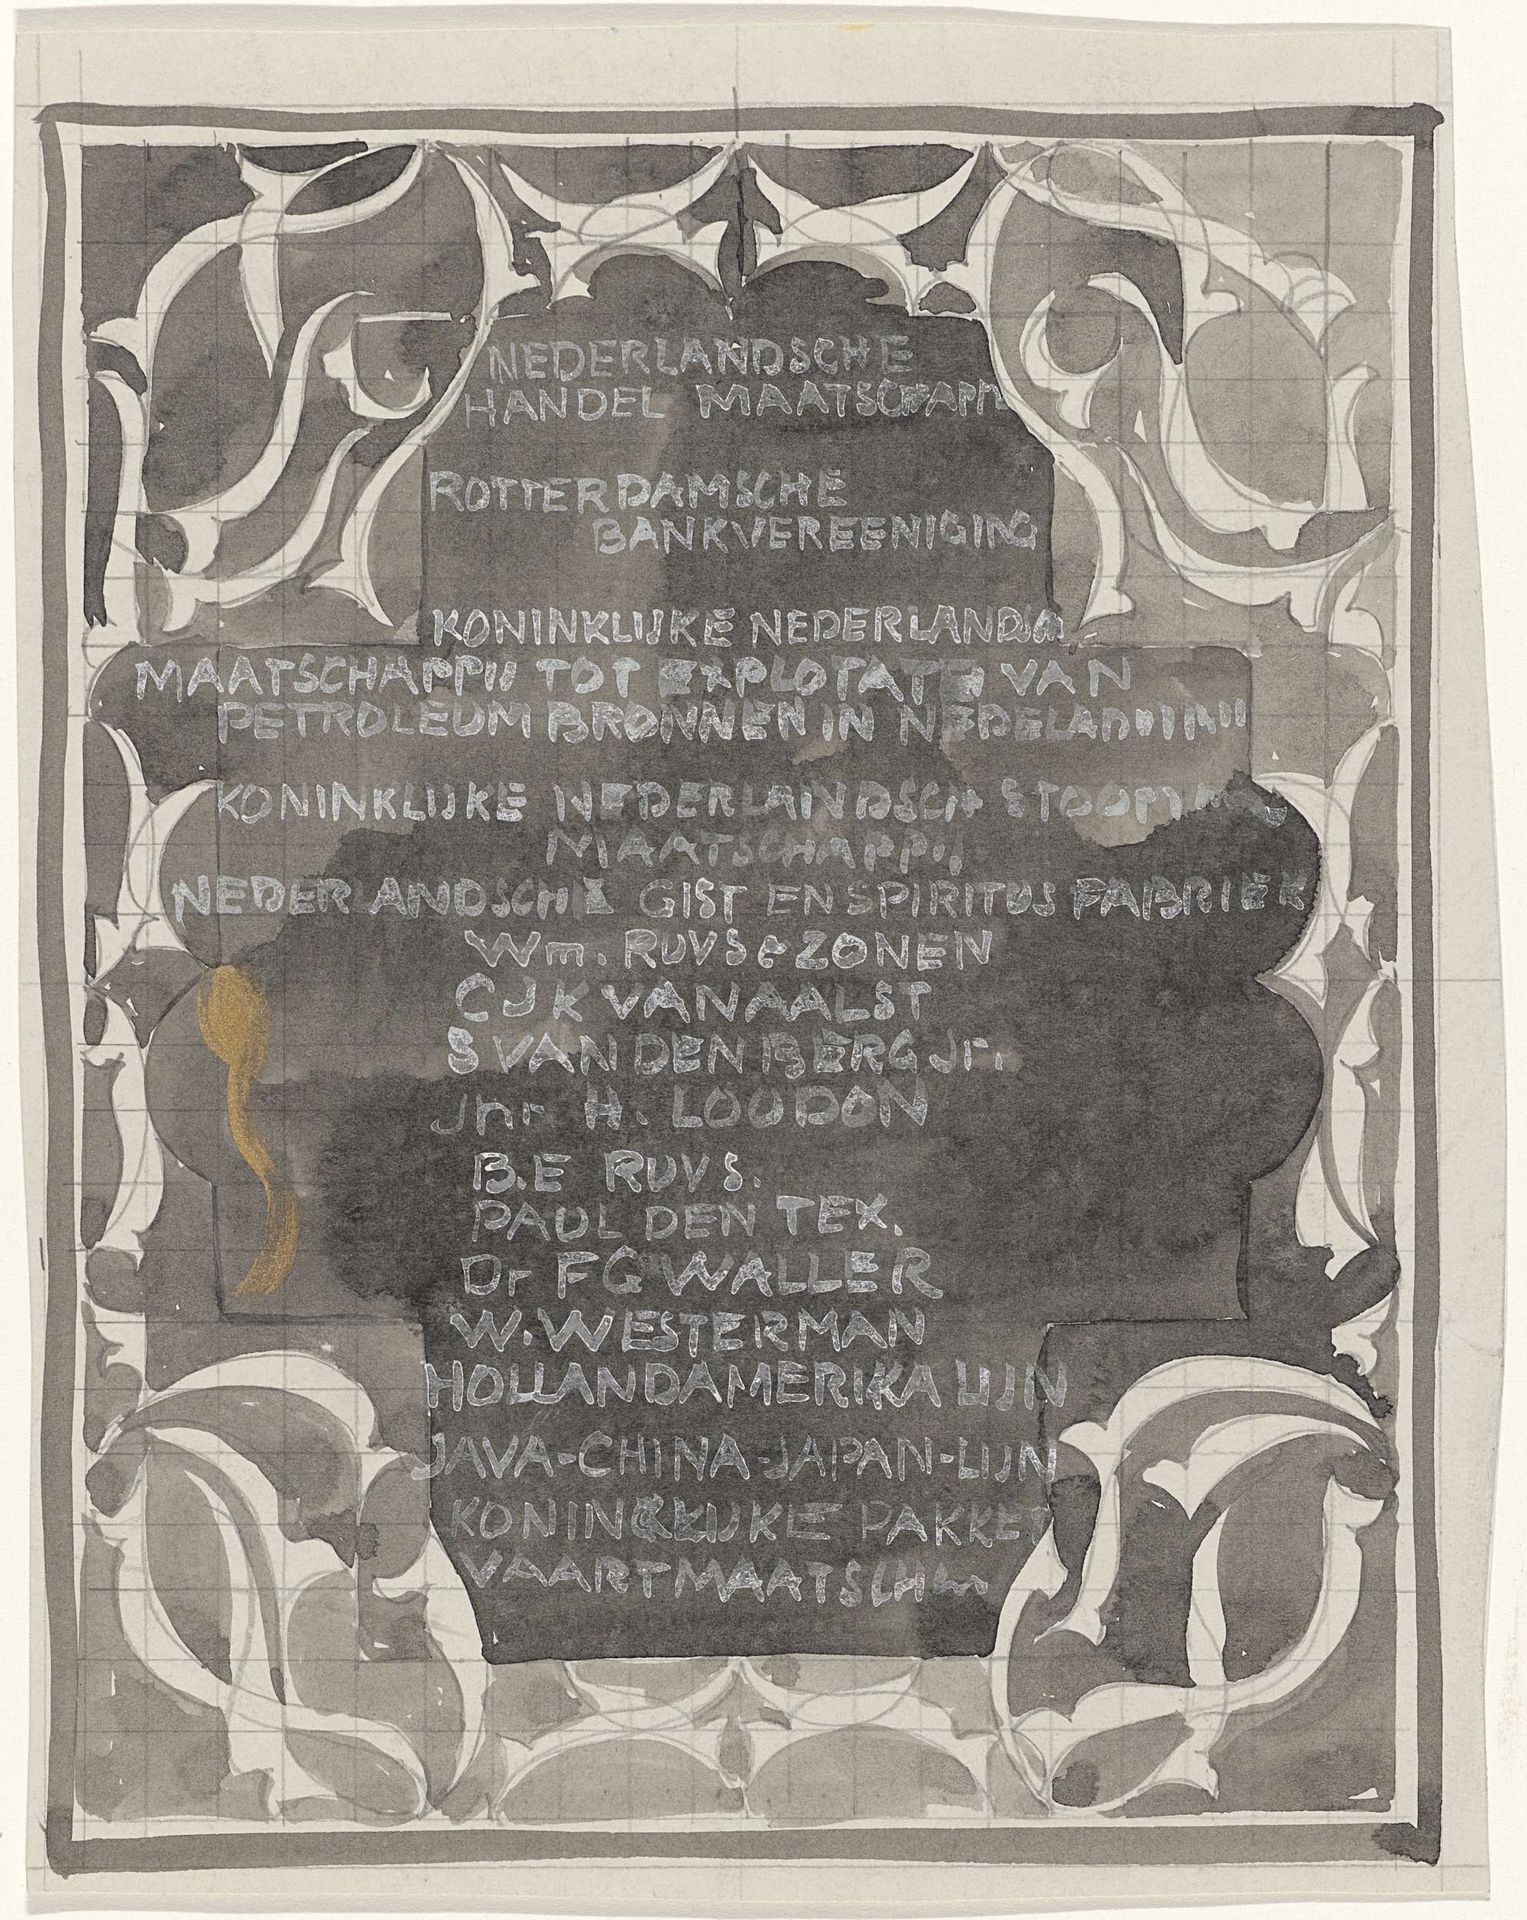 NEDERLANDSCHE
HANDEL MAATSCHAPPIJ
ROTTERDAMSCHE
BANKVEREENIGING
KONINKLIJKE NEDERLANDSCH
MAATSCHAPPIJ TOT EXPLOTATE VAN
PETROLEUM BRONNEN IN
KONINKLIJKE NEDERLANDSCH
MAATSCHAPPIJ
NEDERLANDSCHE GIST EN SPIRITUS FABRIEK
Wm. RUYS & ZONEN
C J K VAN AALST
S VAN DEN BERG Jr.
Jnr H. LOUDON
B.E RUYS.
PAUL DEN TEX.
Dr F G WALLER
W. WESTERMAN
HOLLANDAMERIKA LIJN
JAVA-CHINA-JAPAN-LIJN
KONINKLIJKE PAKKET
VAARTMAATSCH